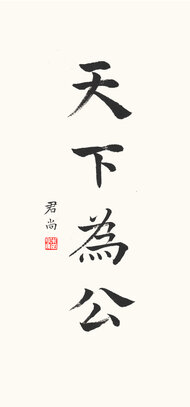 天下為公
君尚